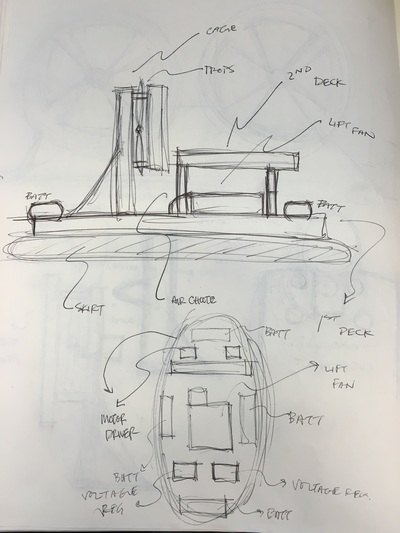 CAGE
PROPS
2ND
DECK
LIFT
FAN
BATT
BATT
SKIRT
AIR CHUTE
1ST
DECK
BATT
LIFT
FAN
MOTOR
DRIVER
BATT
BATT
VOLTAGE
REG
VOLTAGE REG.
BATT